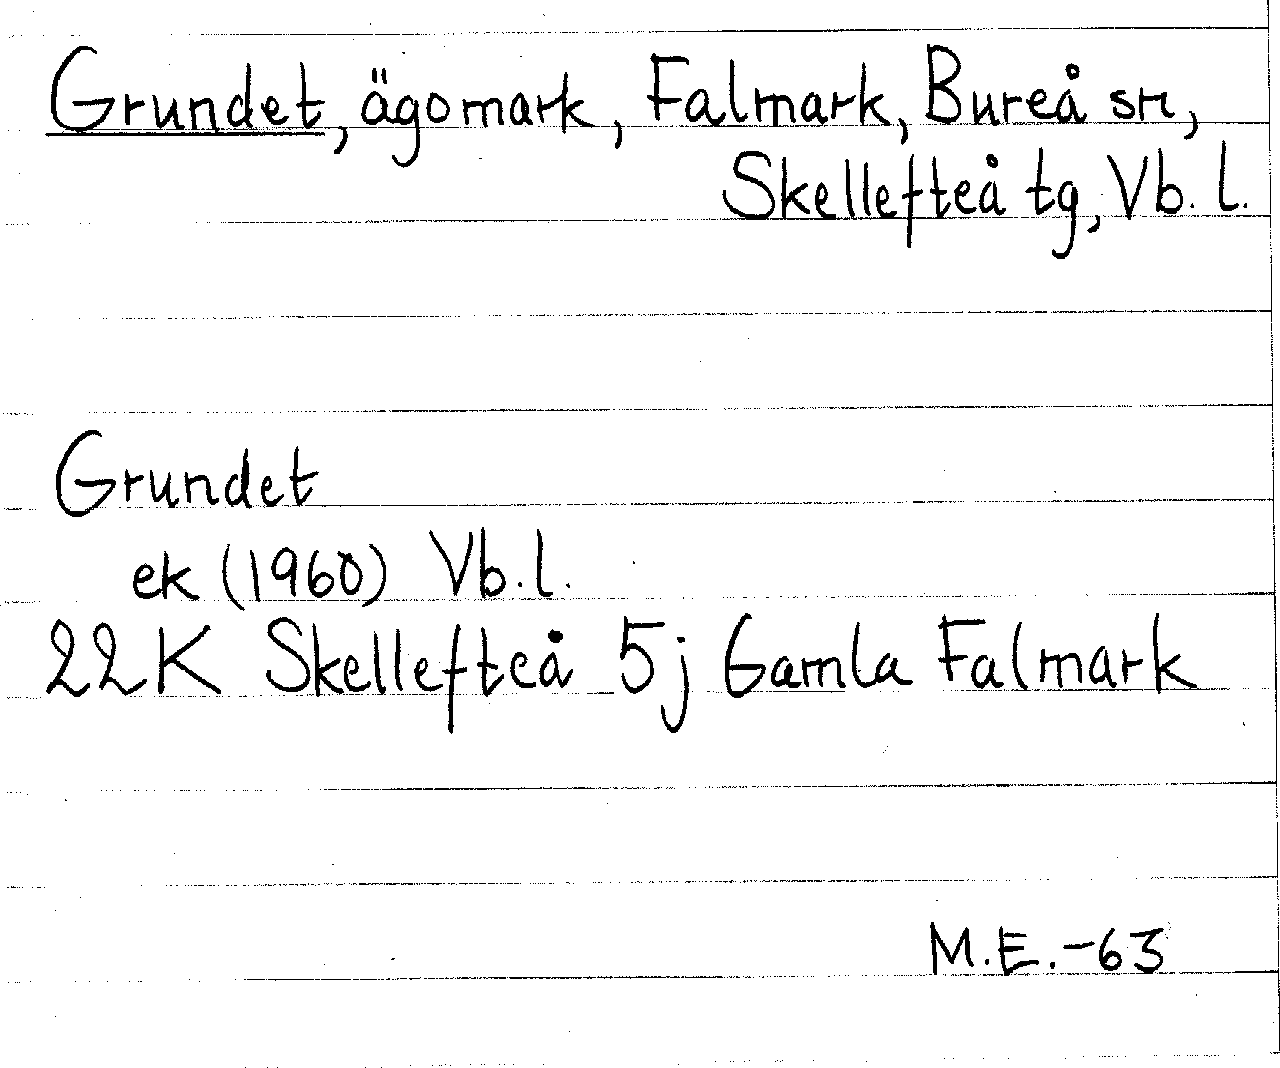 Grundet, ägomark, Falmark, Bureå sn,
Skellefteå tg, Vb. l.
Grundet
ek (1960) Vb. l.
22K Skellefteå 5j Gamla Falmark
M.E.-63